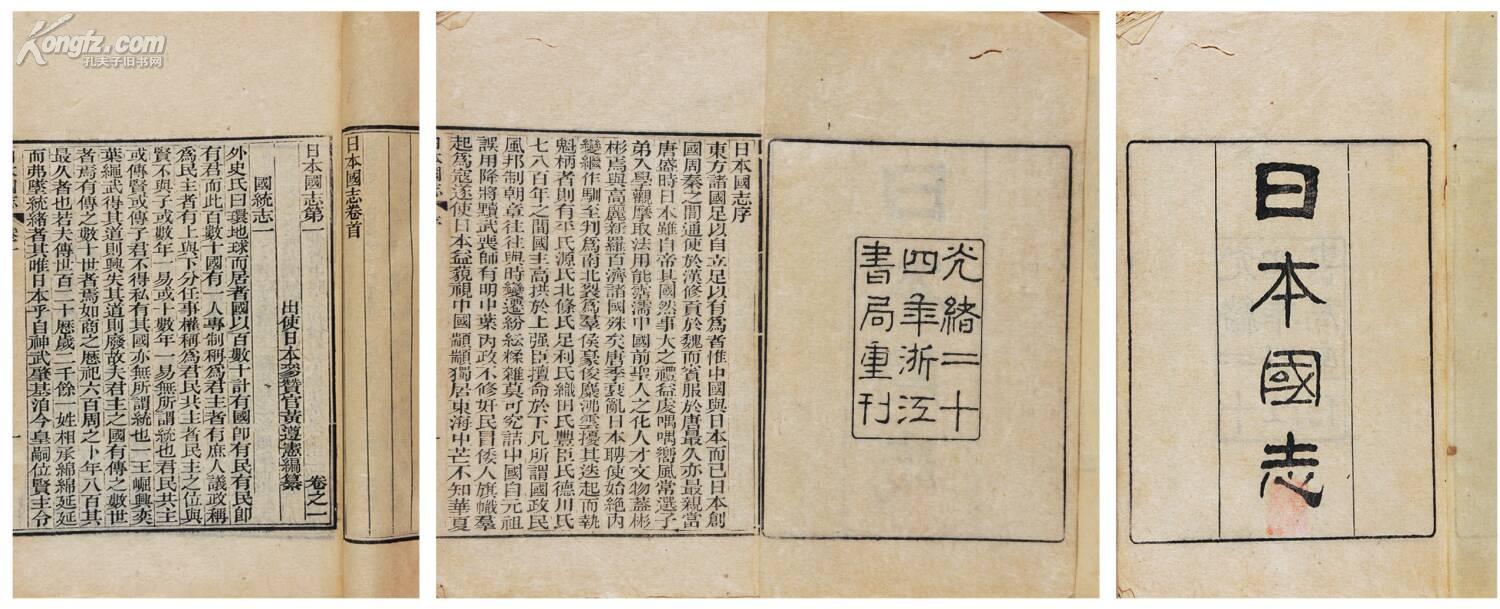 日本國志
光緒二十
四年浙江
書局重刊
日本國志序
東方諸國足以自立足以有爲者惟中國與日本而已日本創
國周秦之間通使於漢修貢於魏而賓服於唐最久亦最親當
唐盛時日本雖自帝其國然事大之禮益虔喁喁嚮風常選子
弟入學觀摩取法用能霑濡中國前聖人之化人才文物蓋彬
彬焉與高麗新羅百濟諸國殊矣唐季衰亂日本聘使始絶內
變繼作馴至判爲南北裂爲羣侯豪俊麋沸雲擾其迭起而執
魁柄者則有平氏源氏北條氏足利氏織田氏豐臣氏德川氏
七八百年之間國主高拱於上强臣擅命於下凡所謂國政民
風邦制朝章往往與時變遷紛紜糅雜莫可究詰中國自元祖
誤用降將黷武喪師有明中葉內政不修奸民冒倭人旗幟羣
起爲寇遂使日本益藐視中國顓顓獨居東海中芒不知華夏
日本國志卷首
日本國志第一
卷之一
出使日本參贊官黃遵憲編纂
國統志一
外史氏曰環地球而居者國以百數十計有國卽有民有民卽
有君而此百數十國有一人專制稱爲君主者有庶人議政稱
爲民主者有上與下分任事權稱爲君民共主者民主之位與
賢不與子或數年一易或十數年一易無所謂統也君民共主
或傳賢或傳子君不得私有其國亦無所謂統也一王崛興奕
葉繩武得其道則興失其道則廢故夫君主之國有傳之數世
者焉有傳之數十世者焉如商之歷祀六百周之卜年八百其
最久者也若夫傳世百二十歷歲二千餘一姓相承綿綿延延
而弗墜統緒者其唯日本乎自神武肇基洎今皇嗣位賢主令
Kongfz.com
孔夫子旧书网